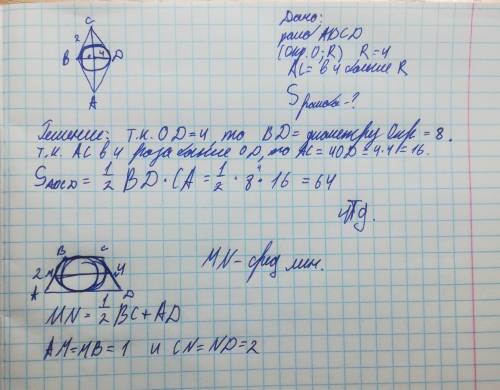 Дано:
ромб ABCD
(Окр. O; R) R = 4
AC = в 4 больше R
S ромба - ?
C
2
B 4 D
A
Решение: т.к. OD = 4, то BD = диаметру Окр = 8.
т.к. AC в 4 раза больше OD, то AC = 4OD = 4·4 = 16.
S ABCD = 1/2 BD · CA = 1/2 · 8 · 16 = 64
MN - сред лин.
B C
2 M N 4
A D
MN = 1/2 BC + AD
AM = MB = 1 и CN = ND = 2